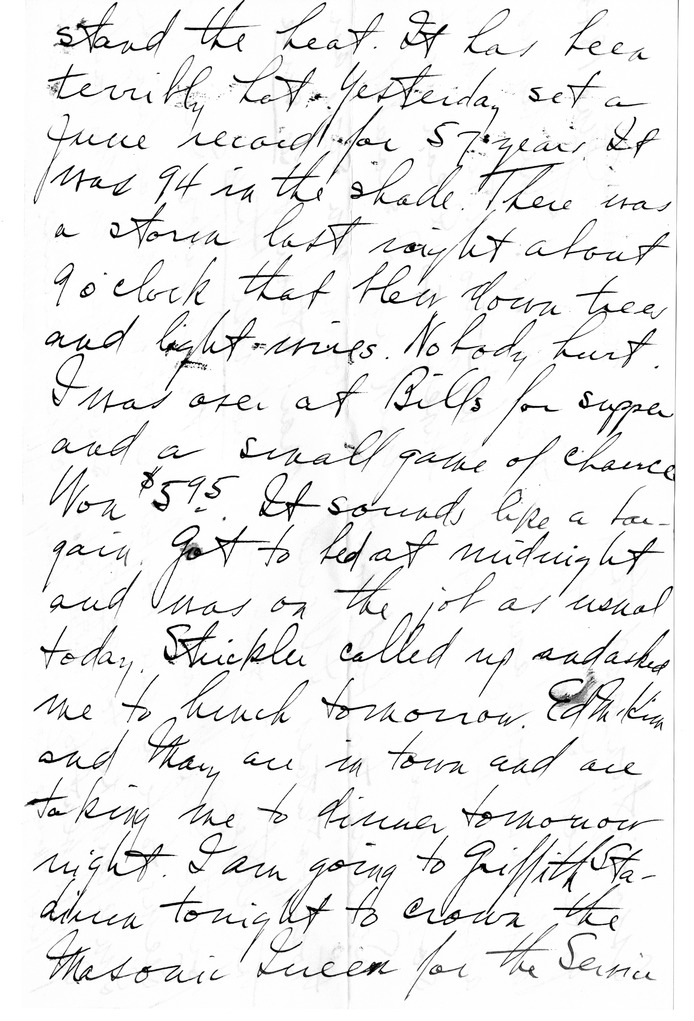 stand the heat. It has been
terribly hot. Yesterday set a
June record for 57 years. It
was 94 in the shade. There was
a storm last night about
9 o'clock that blew down trees
and light-wires. Nobody hurt.
I was over at Bills for supper
and a small game of chance
Won $5.95. It sounds like a bar-
gain. Got to bed at midnight
and was on the job as usual
today. Strickler called up and asked
me to lunch tomorrow. Ed McKim
and Mary are in town and are
taking me to dinner tomorrow
night. I am going to Griffith Sta-
dium tonight to crown the
Masonic Queen for the Service